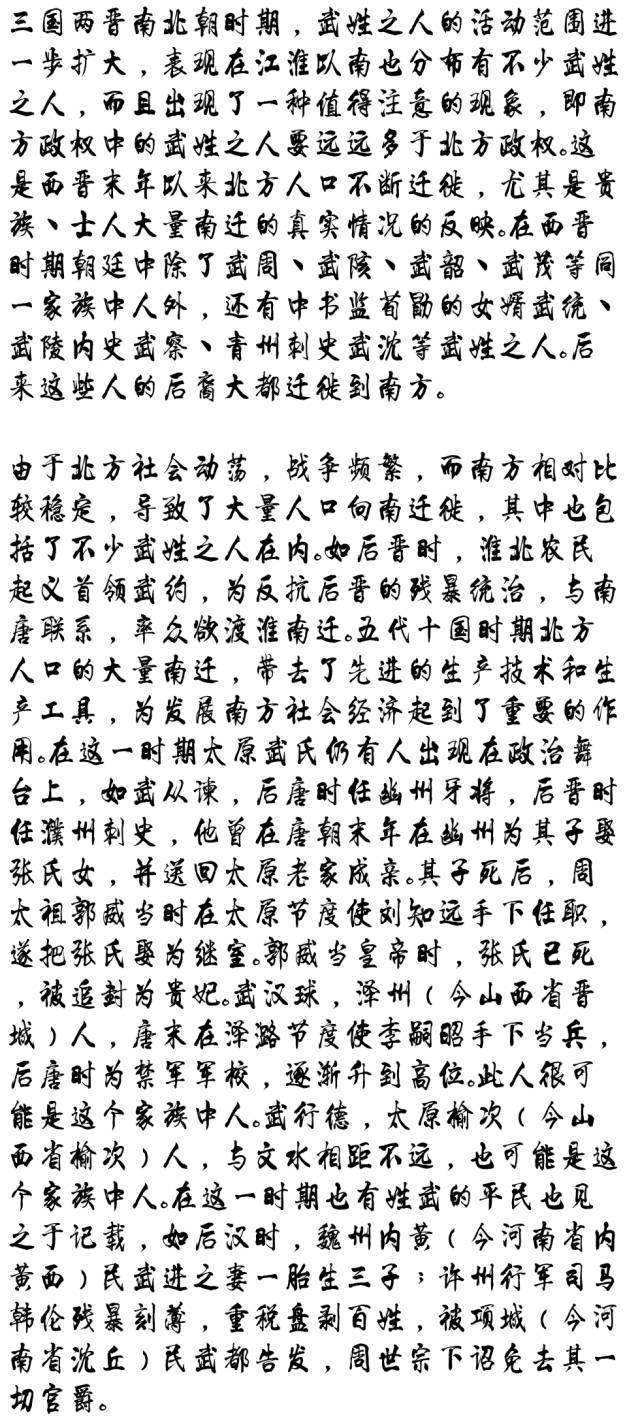 三国两晋南北朝时期，武姓之人的活动范围进
一步扩大，表现在江淮以南也分布有不少武姓
之人，而且出现了一种值得注意的现象，即南
方政权中的武姓之人要远远多于北方政权。这
是西晋末年以来北方人口不断迁徙，尤其是贵
族、士人大量南迁的真实情况的反映。在西晋
时期朝廷中除了武周、武陔、武韶、武茂等同
一家族中人外，还有中书监荀勖的女婿武统、
武陵内史武察、青州刺史武沈等武姓之人。后
来这些人的后裔大都迁徙到南方。
由于北方社会动荡，战争频繁，而南方相对比
较稳定，导致了大量人口向南迁徙，其中也包
括了不少武姓之人在内。如后晋时，淮北农民
起义首领武约，为反抗后晋的残暴统治，与南
唐联系，率众欲渡淮南迁。五代十国时期北方
人口的大量南迁，带去了先进的生产技术和生
产工具，为发展南方社会经济起到了重要的作
用。在这一时期太原武氏仍有人出现在政治舞
台上，如武从谏，后唐时任幽州牙将，后晋时
任濮州刺史，他曾在唐朝末年在幽州为其子娶
张氏女，并送回太原老家成亲。其子死后，周
太祖郭威当时在太原节度使刘知远手下任职，
遂把张氏娶为继室。郭威当皇帝时，张氏已死
，被追封为贵妃。武汉球，泽州（今山西省晋
城）人，唐末在泽潞节度使李嗣昭手下当兵，
后唐时为禁军军校，逐渐升到高位。此人很可
能是这个家族中人。武行德，太原榆次（今山
西省榆次）人，与文水相距不远，也可能是这
个家族中人。在这一时期也有姓武的平民也见
之于记载，如后汉时，魏州内黄（今河南省内
黄西）民武进之妻一胎生三子；许州行军司马
韩伦残暴刻薄，重税盘剥百姓，被项城（今河
南省沈丘）民武都告发，周世宗下诏免去其一
切官爵。